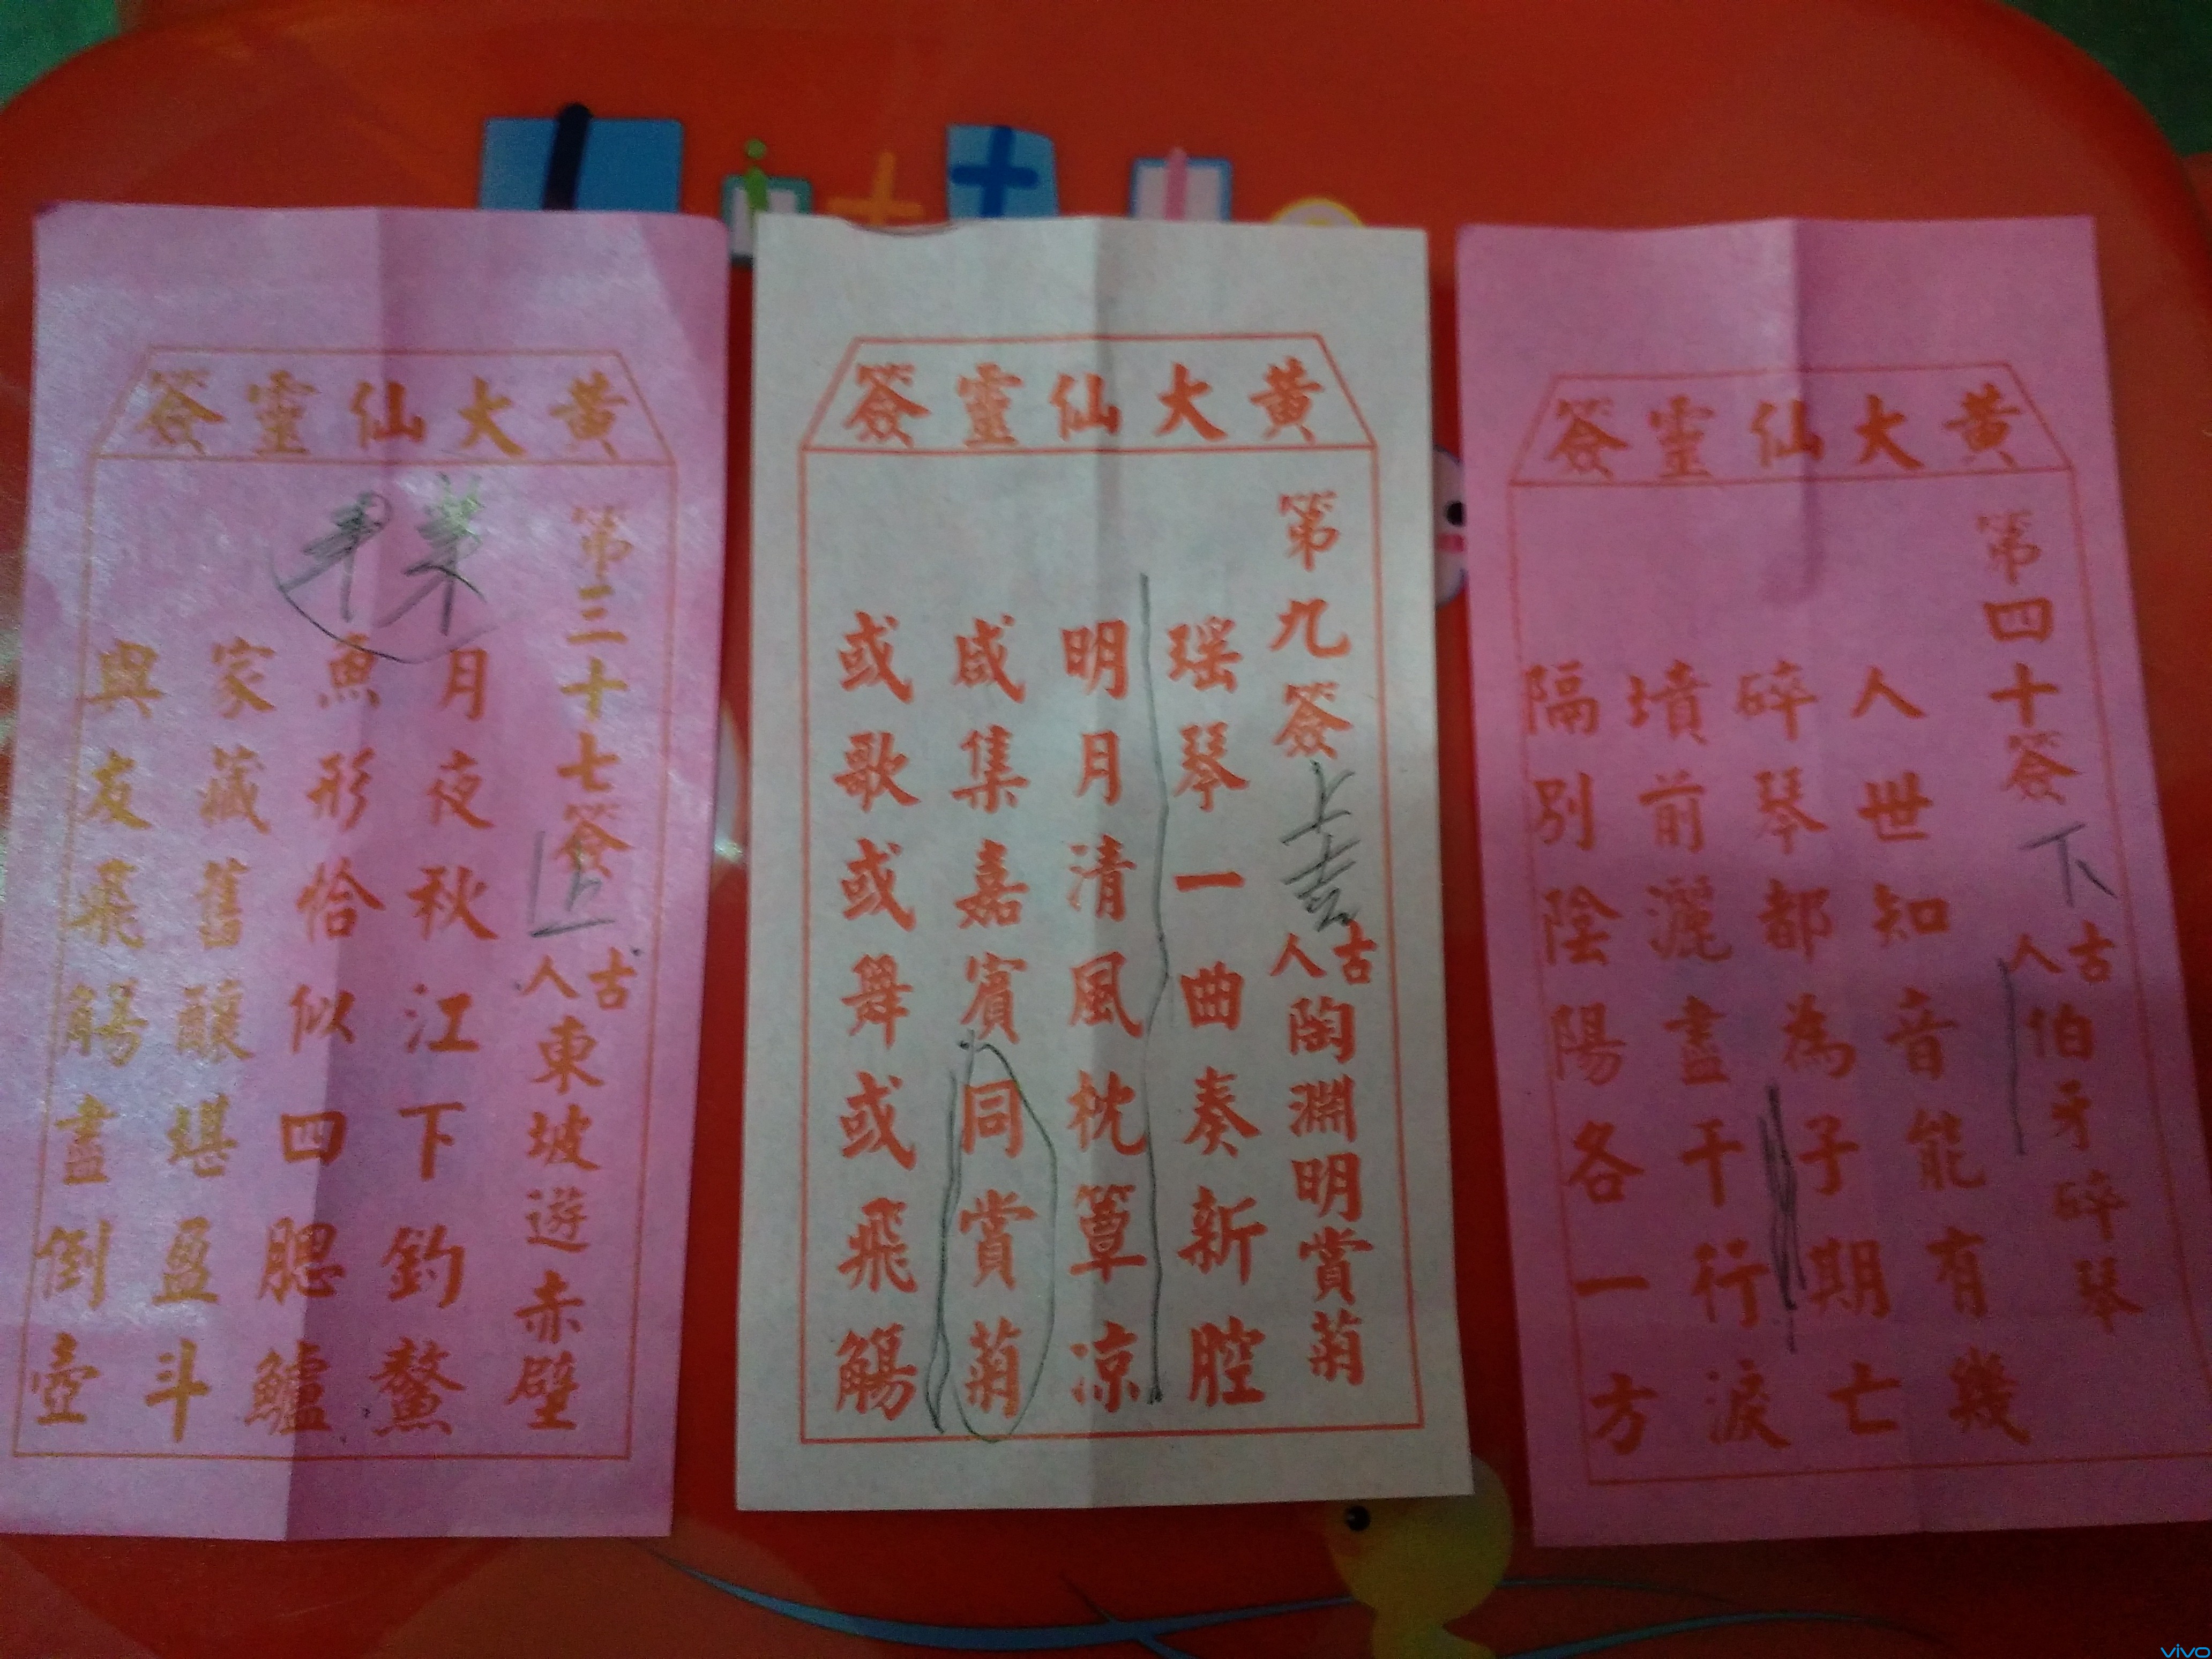 黃大仙靈簽
第三十七簽
上
古人東坡遊赤壁
月夜秋江下釣鰲
魚形恰似四腮鱸
家藏舊釀堪盈斗
與友飛觴盡倒壺
黃大仙靈簽
第九簽
上吉
古人陶淵明賞菊
瑶琴一曲奏新腔
明月清風枕簟凉
咸集嘉賓同賞菊
或歌或舞或飛觴
黃大仙靈簽
第四十簽
下
古人伯牙碎琴
人世知音能有幾
碎琴都為子期亡
墳前灑盡千行淚
隔別陰陽各一方
vivo